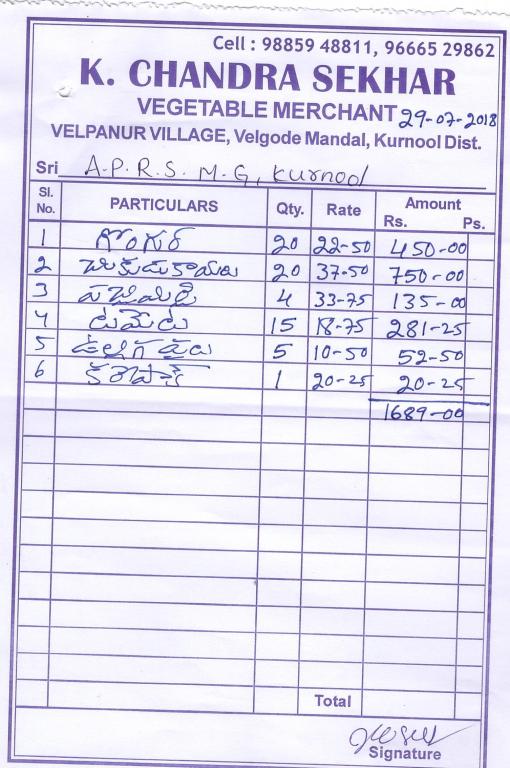 Cell : 98859 48811, 96665 29862
K. CHANDRA SEKHAR
VEGETABLE MERCHANT 29-07-2018
VELPANUR VILLAGE, Velgode Mandal, Kurnool Dist.
Sri A.P.R.S. M.G, Kurnool
Sl. No. PARTICULARS Qty. Rate Amount Rs. Ps.
1 20 22-50 450-00
2 20 37-50 750-00
3 4 33-75 135-00
4 టమోటు 15 18-75 281-25
5 ఉల్లిగడ్డలు 5 10-50 52-50
6 1 20-25 20-25
1689-00
Total
Signature